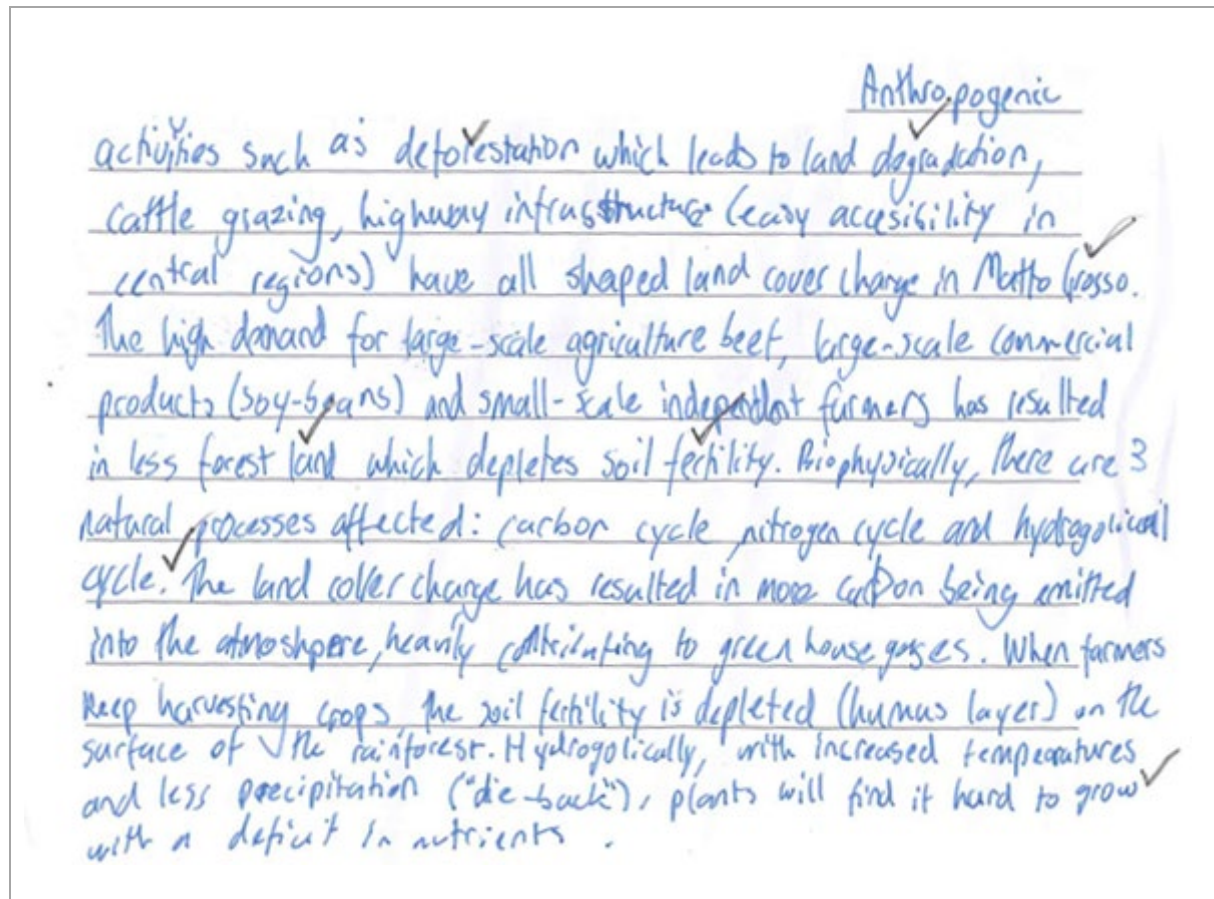 Anthropogenic
activities such as deforestation which leads to land degradation,
cattle grazing, highway infrastructure (easy accesibility in
central regions) have all shaped land cover change in Matto Grosso.
The high demand for large-scale agriculture beef, large-scale commercial
products (soy-beans) and small-scale independent farmers has resulted
in less forest land which depletes soil fertility. Biophysically, there are 3
natural processes affected: carbon cycle, nitrogen cycle and hydrogolical
cycle. The land cover change has resulted in more carbon being emitted
into the atmoshpere, heavily contributing to green house gasses. When farmers
keep harvesting crops, the soil fertility is depleted (humus layer) on the
surface of the rainforest. Hydrogolically, with increased tempearatures
and less precipitation ("die-back"), plants will find it hard to grow
with a deficit in nutrients.